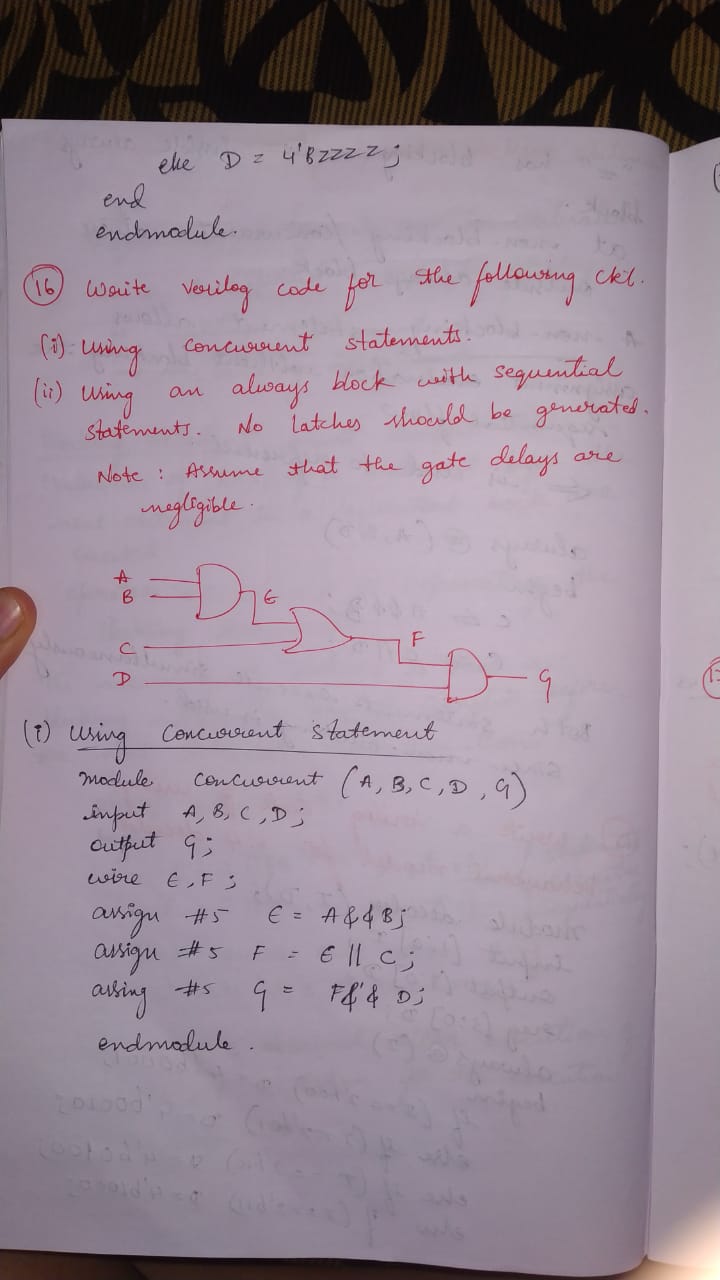 else D = 4'BZZZZ;
end
endmodule.
16 Write verilog code for the following ckt.
(i) Using concurrent statements.
(ii) Using an always block with sequential
statements. No latches should be generated.
Note : Assume that the gate delays are
negligible.
A
B
E
C
F
D
G
(i) Using Concurrent Statement
module concurrent (A, B, C, D, G)
input A, B, C, D;
output G;
wire E, F;
assign #5 E = A && B;
assign #5 F = E || C;
assing #5 G = F && D;
endmodule.